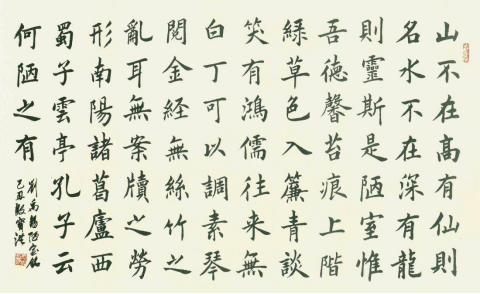 山不在高有仙則
名水不在深有龍
則靈斯是陋室惟
吾德馨苔痕上階
綠草色入簾青談
笑有鴻儒往來無
白丁可以調素琴
閱金經無絲竹之
亂耳無案牘之勞
形南陽諸葛廬西
蜀子雲亭孔子云
何陋之有
劉禹錫陋室銘
己丑